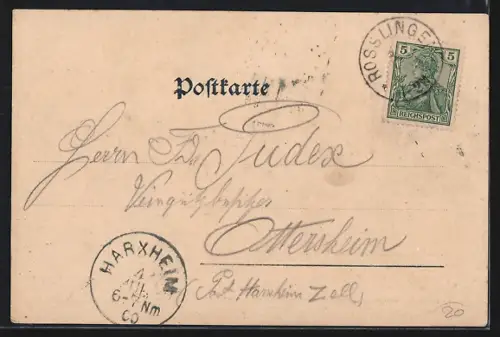 ROSSLINGEN
5 5
REICHSPOST
Postkarte
Herrn Th. Judex
Weingutsbesitzer
Ottersheim
(Post Harxheim Zell)
HARXHEIM
4
JUL
6-7 Nm
00
20